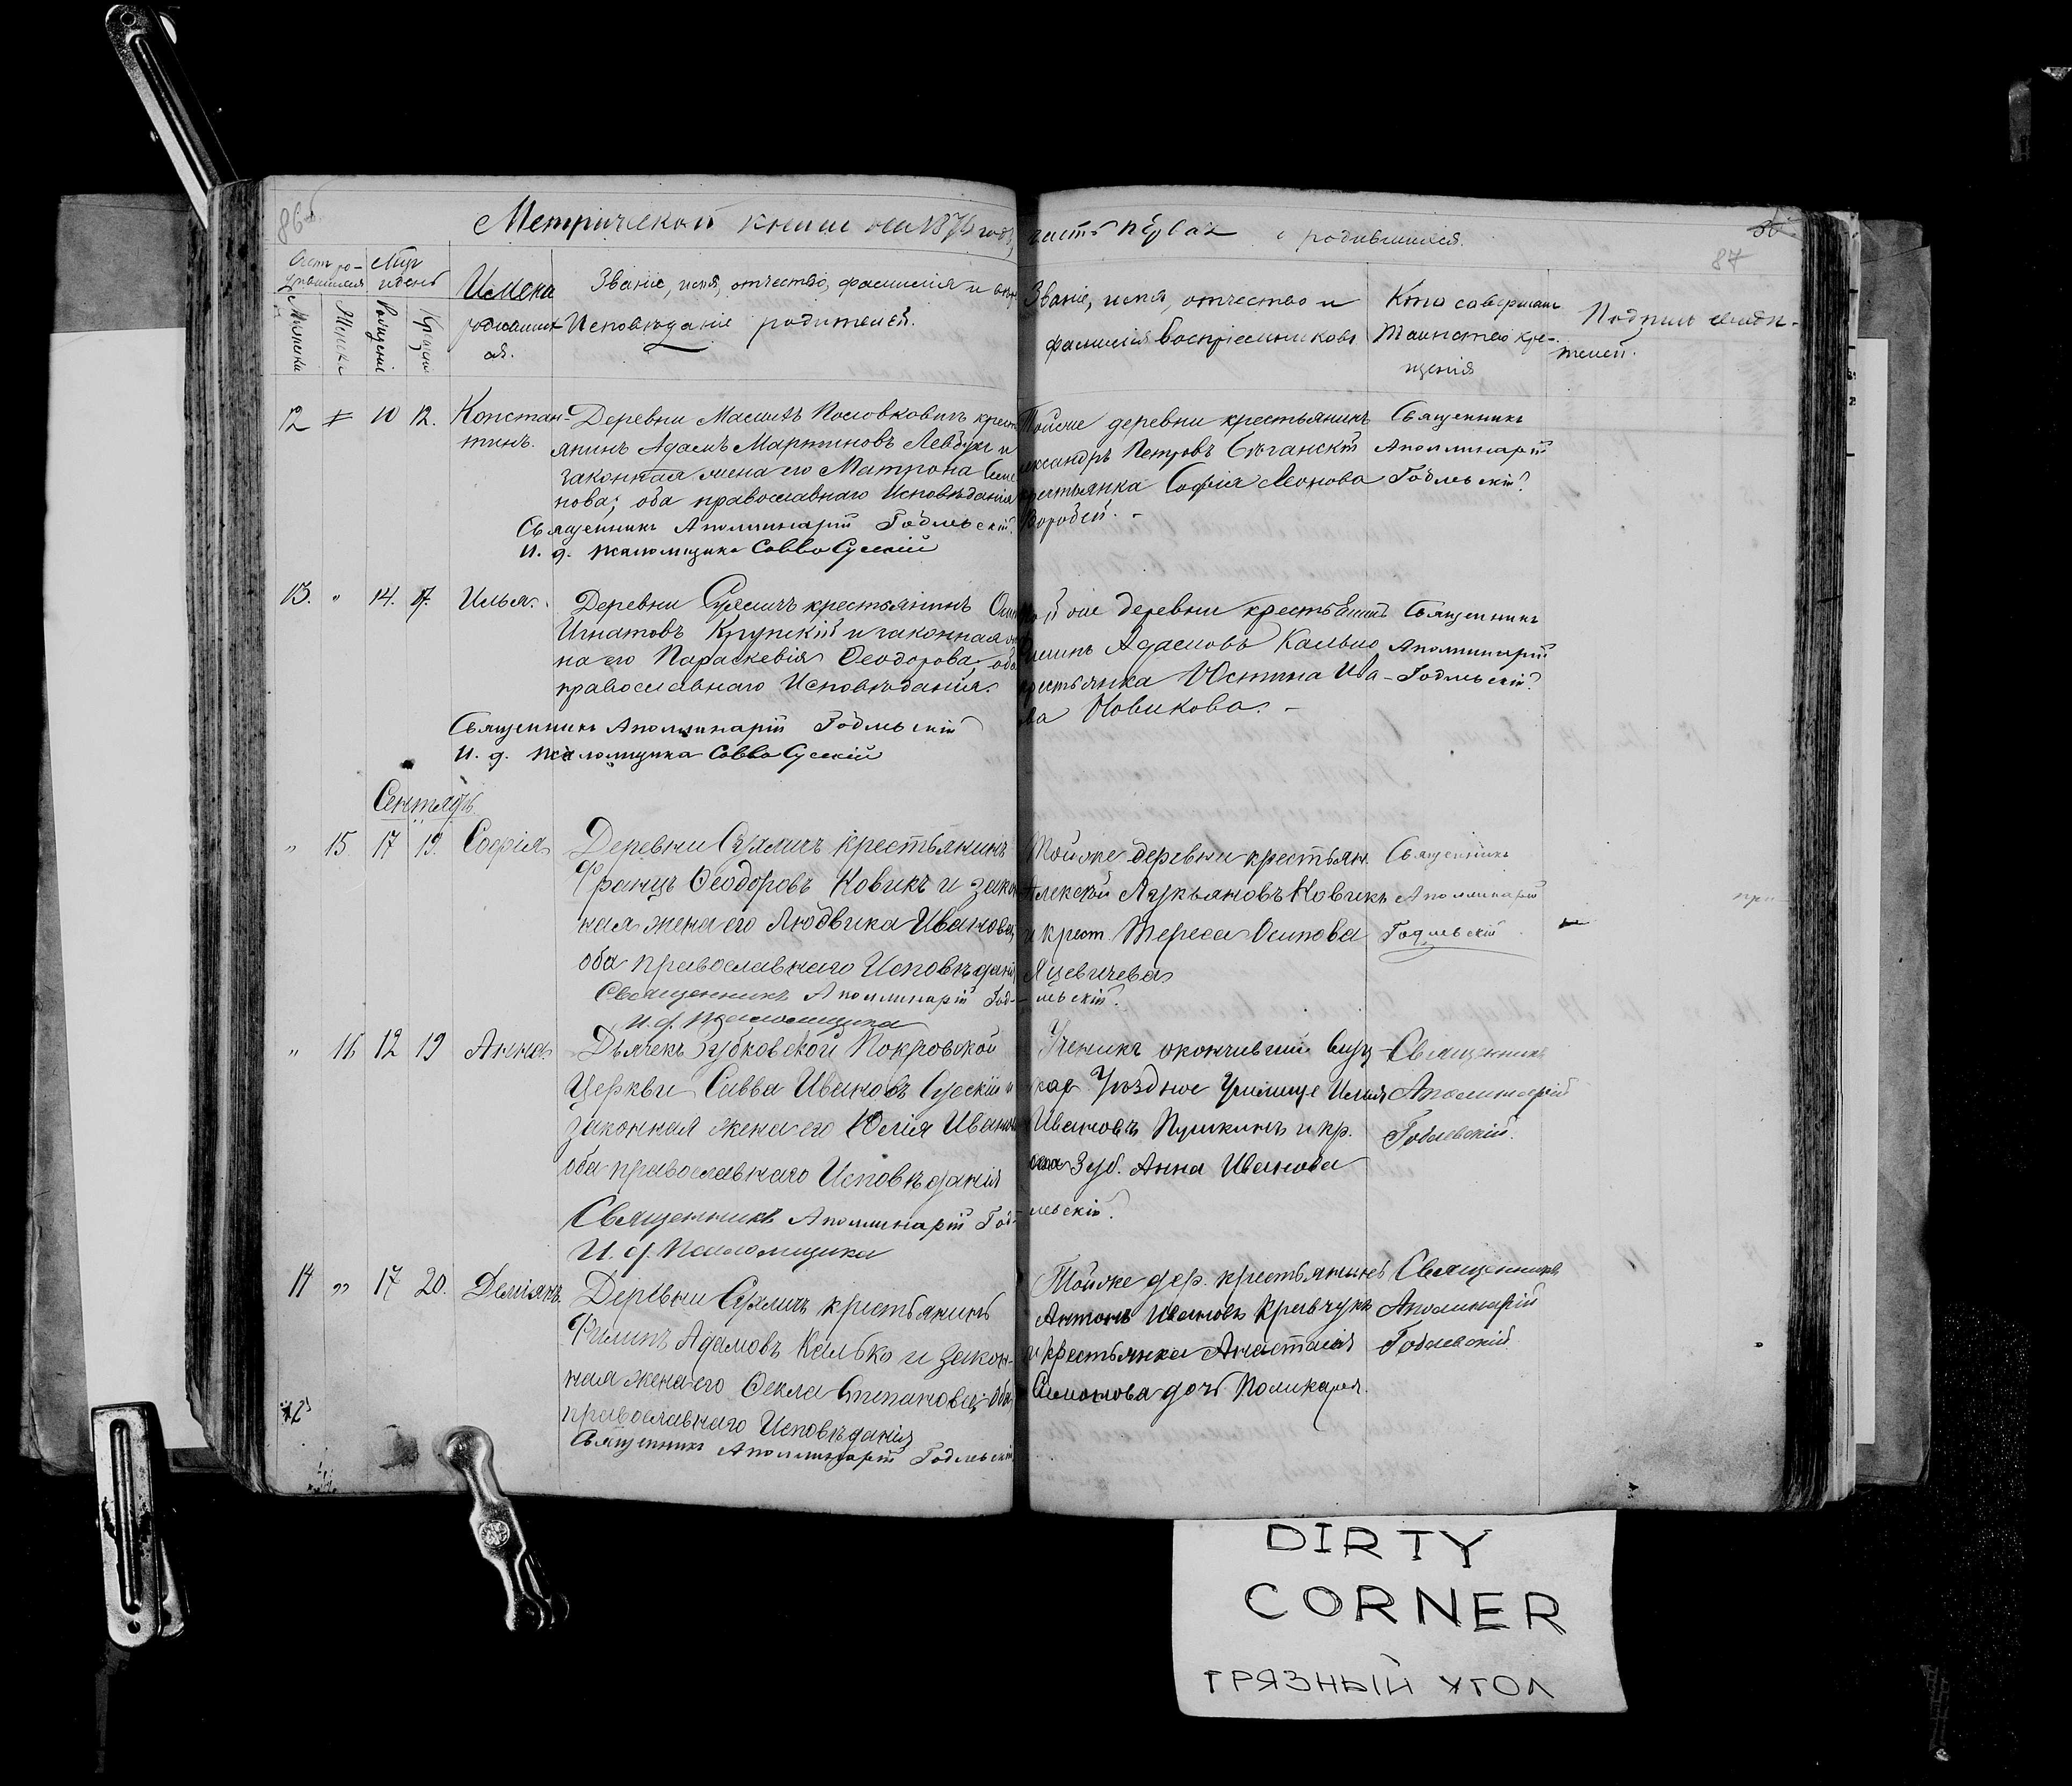 86об.
Метрической книги на 1874 годъ, часть первая о родившихся.
87
Счетъ родившихся
Мѣсяцъ и день
Имена родившихся.
Званіе, имя, отчество, фамилія и
Исповѣданіе родителей.
Званіе, имя, отчество и
фамилія воспріемниковъ
Кто совершалъ
таинство кре-
щенія
Подписи свидѣ-
телей.
Мужеска
Женска
Рожденія
Крещенія
12 10 12. Констан-
тинъ.
Деревни крест
янинъ Адамъ Мартиновъ и
законная жена его Матрона Семе
нова; оба православнаго Исповѣданія
Священникъ Аполлинарій Годлевскій.
И. д. псаломщика Савва Сускій
Тойже деревни крестьянинъ
лександръ Петровъ
крестьянка Софія Леонова
Воробей. -
Священникъ
Аполлинарій
Годлевскій
13. " 14. 17. Илья.
Деревни Сухличъ крестьянинъ
Игнатовъ Крупскій и законная же
на его Параскевія Ѳеодорова, оба
православнаго Исповѣданія.
Священникъ Аполлинарій Годлевскій
И. д. псаломщика Савва Сускій
Той же деревни крестьянинъ
Филипъ Адамовъ Калько
крестьянка Юстина Ива-
ва Новикова. -
Священникъ
Аполлинарій
Годлевскій
Сентябрь.
" 15 17 19 Софія
Деревни Сухличъ крестьянинъ
Францъ Ѳеодоровъ Новикъ и закон
ная жена его Людвика Иванова,
оба православнаго Исповѣданія
Священникъ Аполлинарій Год-левскій.
И. д. Псаломщика
Тойже деревни крестьян.
Алексѣй Лукьяновъ Новикъ
и крест. Тереса Осипова
Яцевичева
Священникъ
Аполлинарій
Годлевскій
" 16 12 19 Анна
Дьячекъ Зубковской Покровской
Церкви Савва Ивановъ Сускій и
законная жена его Юлія Иванов
оба православнаго Исповѣданія
Священникъ Аполлинарій Год-левскій.
И. д. Псаломщика
Ученикъ окончившій Слуц-
кое Уѣздное Училище Илья
Ивановъ Пушкинъ и кр.
Зуб. Анна Иванова
Священникъ
Аполинарій
Годлевскій.
14 " 17 20. Деміянъ.
Деревни Сухличъ крестьянинъ
Филипъ Адамовъ Калько и закон-
ная жена его Ѳекла Степанова; оба
православнаго Исповѣданія
Священникъ Аполлинарій Годлевскій
Тойже дер. крестьянинъ
Антонъ Ивановъ Кравчукъ
и крестьянка Анастасія
Симонова дочь Поликарпа.
Священникъ
Аполинарій
Годлевскій
DIRTY
CORNER
ГРЯЗНЫЙ УГОЛ